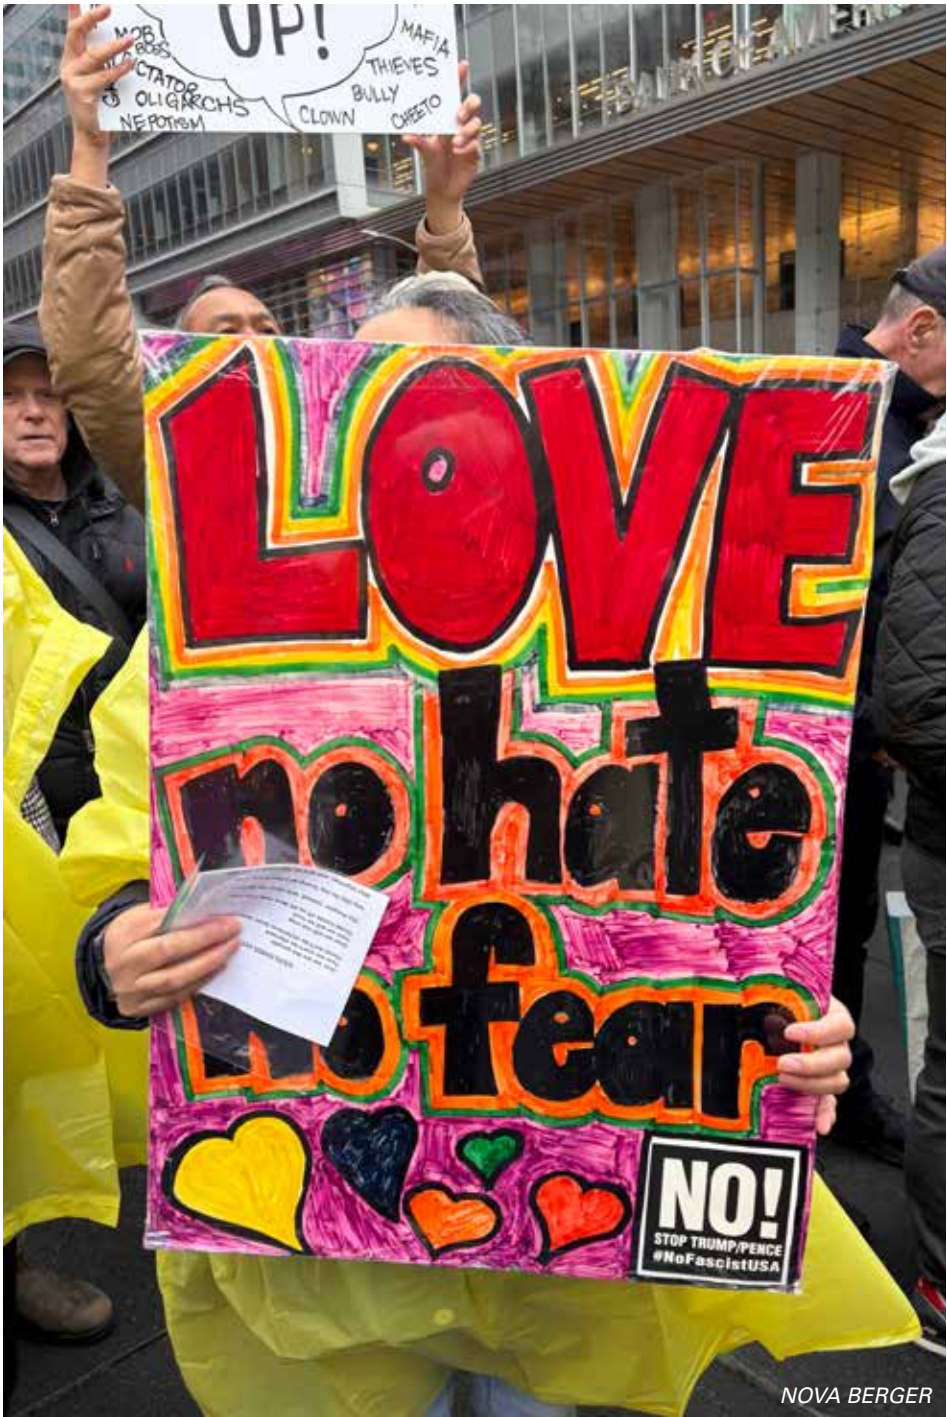 UP!
MOB
BOSS
MAFIA
THIEVES
OLIGARCHS
BULLY
NEPOTISM
CLOWN
CHEETO
BANK OF AMERICA
LOVE
no hate
no fear
NO!
STOP TRUMP/PENCE
#NoFascistUSA
NOVA BERGER